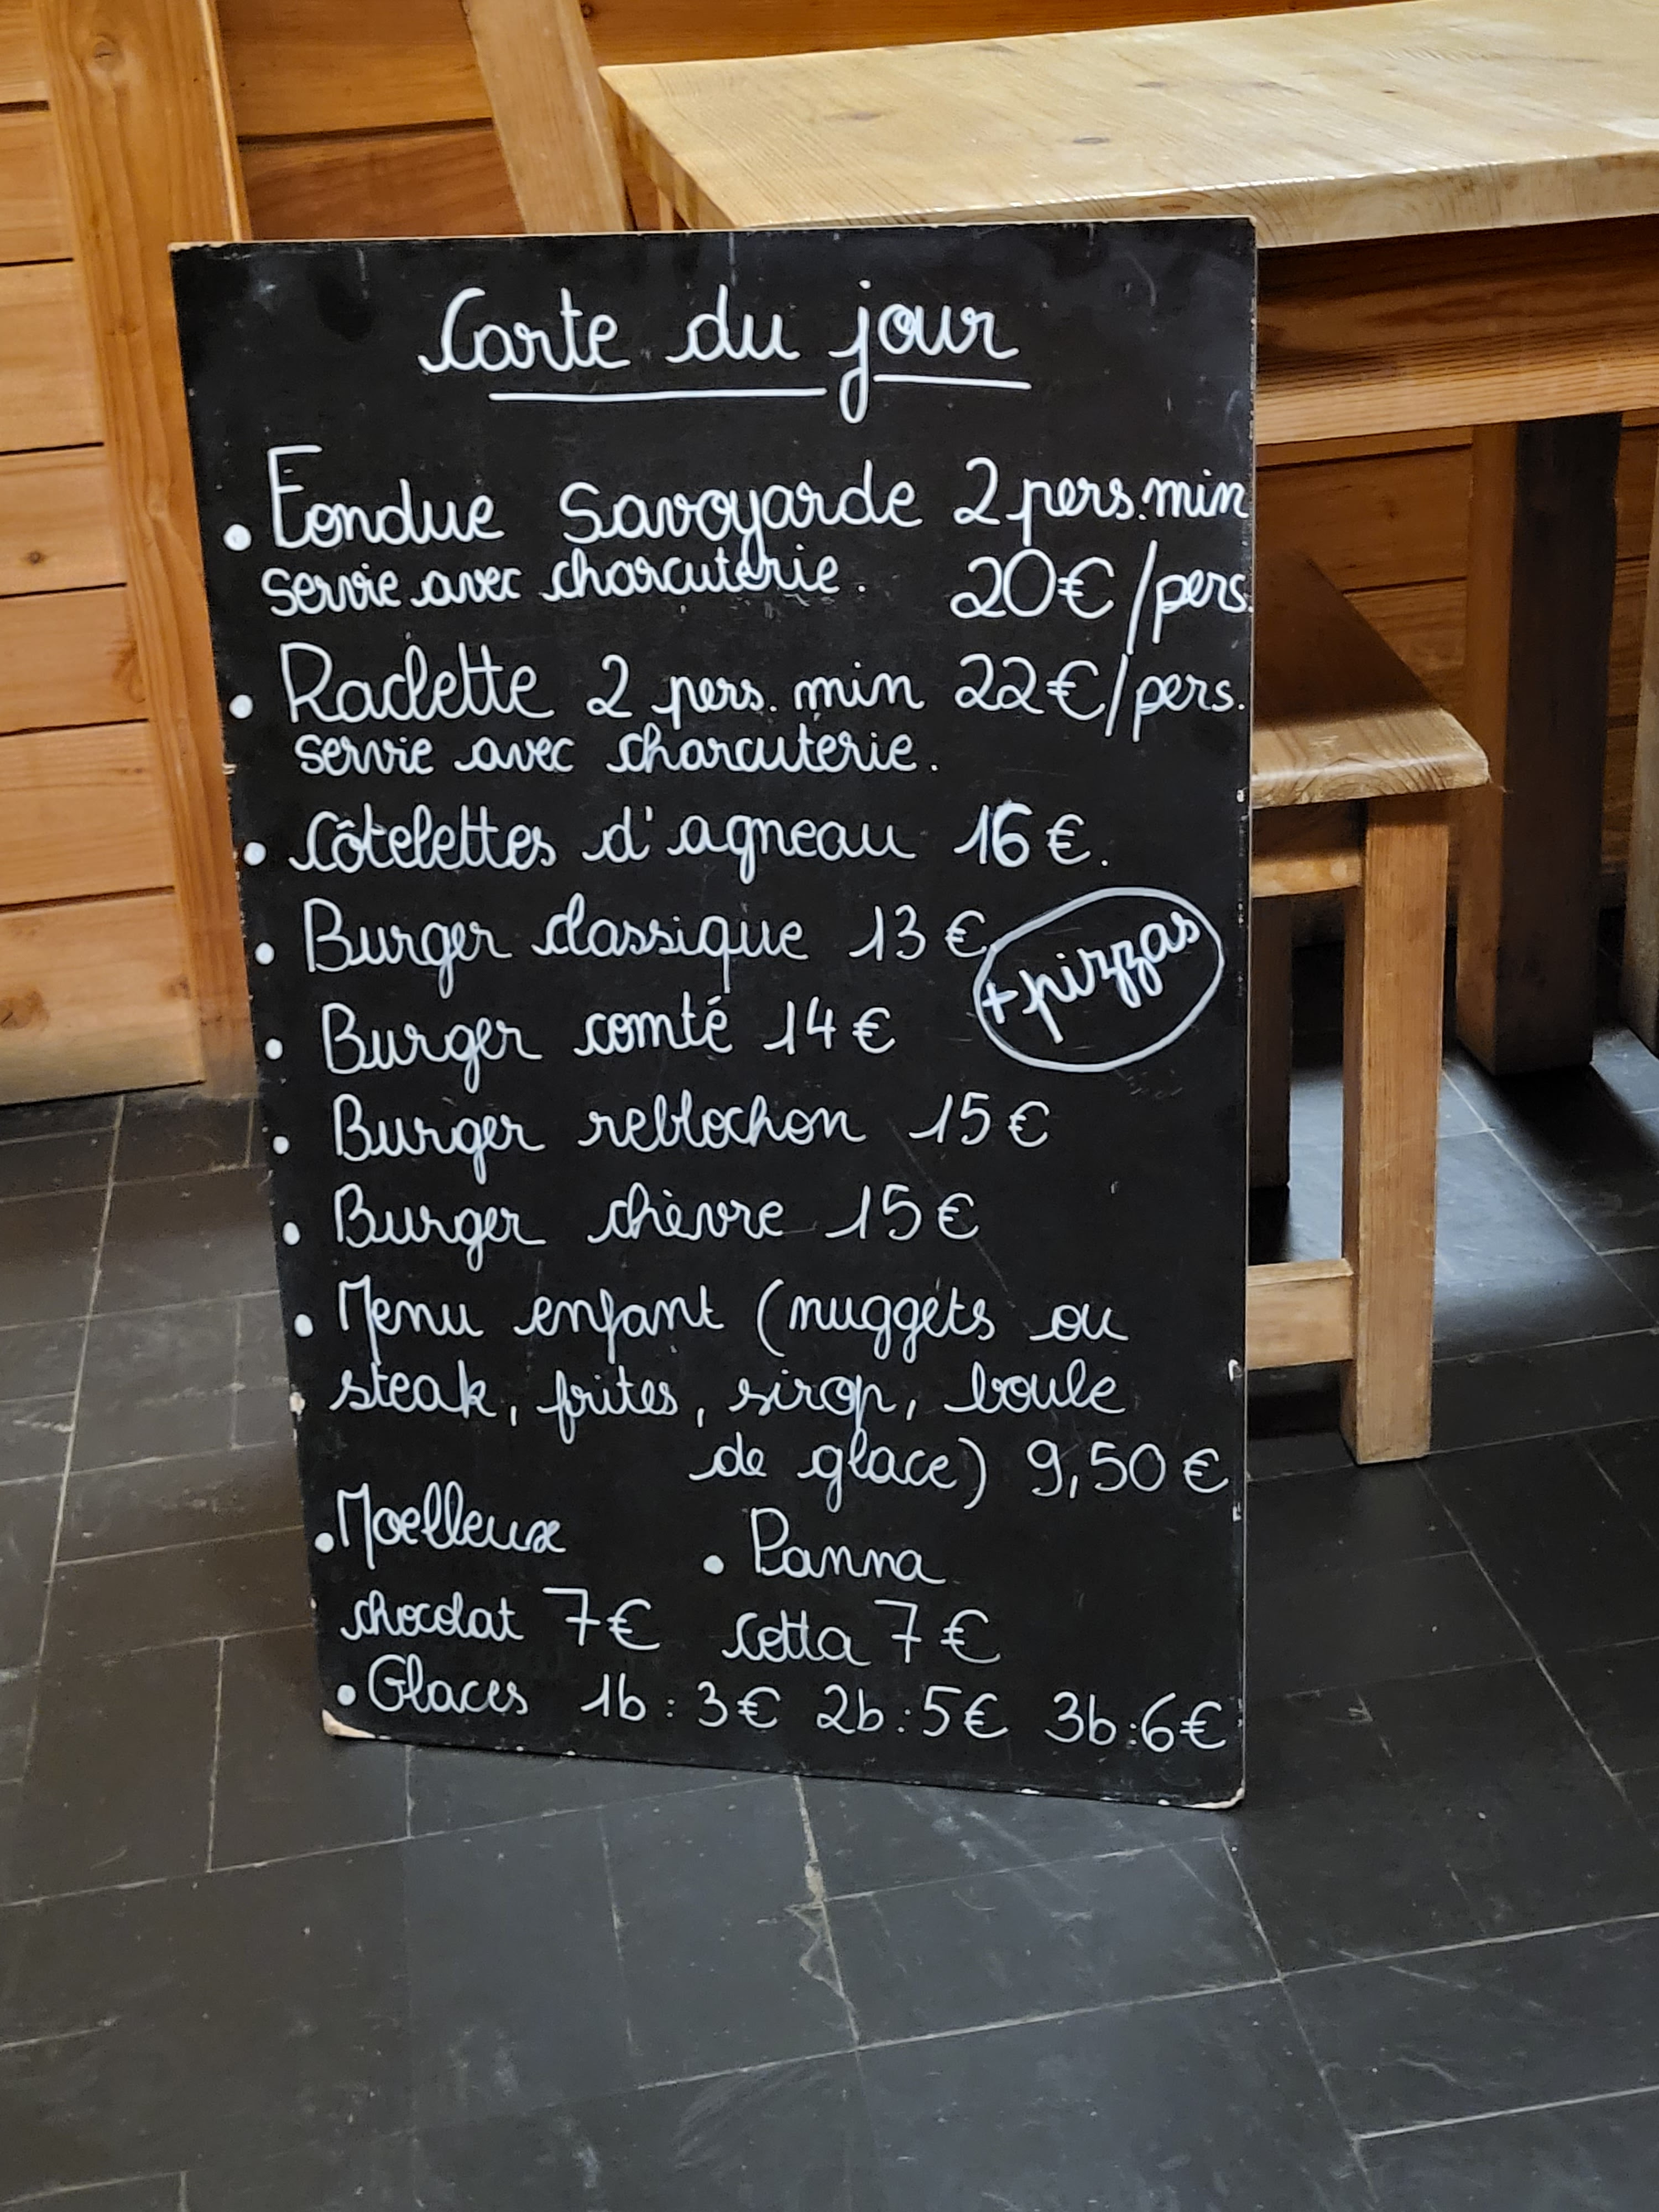 Carte du jour
• Fondue Savoyarde 2 pers. min
servie avec charcuterie. 20€/pers.
• Raclette 2 pers. min 22€/pers.
servie avec charcuterie.
• Côtelettes d'agneau 16€.
• Burger classique 13€
+ pizzas
• Burger comté 14€
• Burger reblochon 15€
• Burger chèvre 15€
• Menu enfant (nuggets ou
steak, frites, sirop, boule
de glace) 9,50€
• Moelleux
chocolat 7€
• Panna
cotta 7€
• Glaces 1b : 3€ 2b : 5€ 3b : 6€